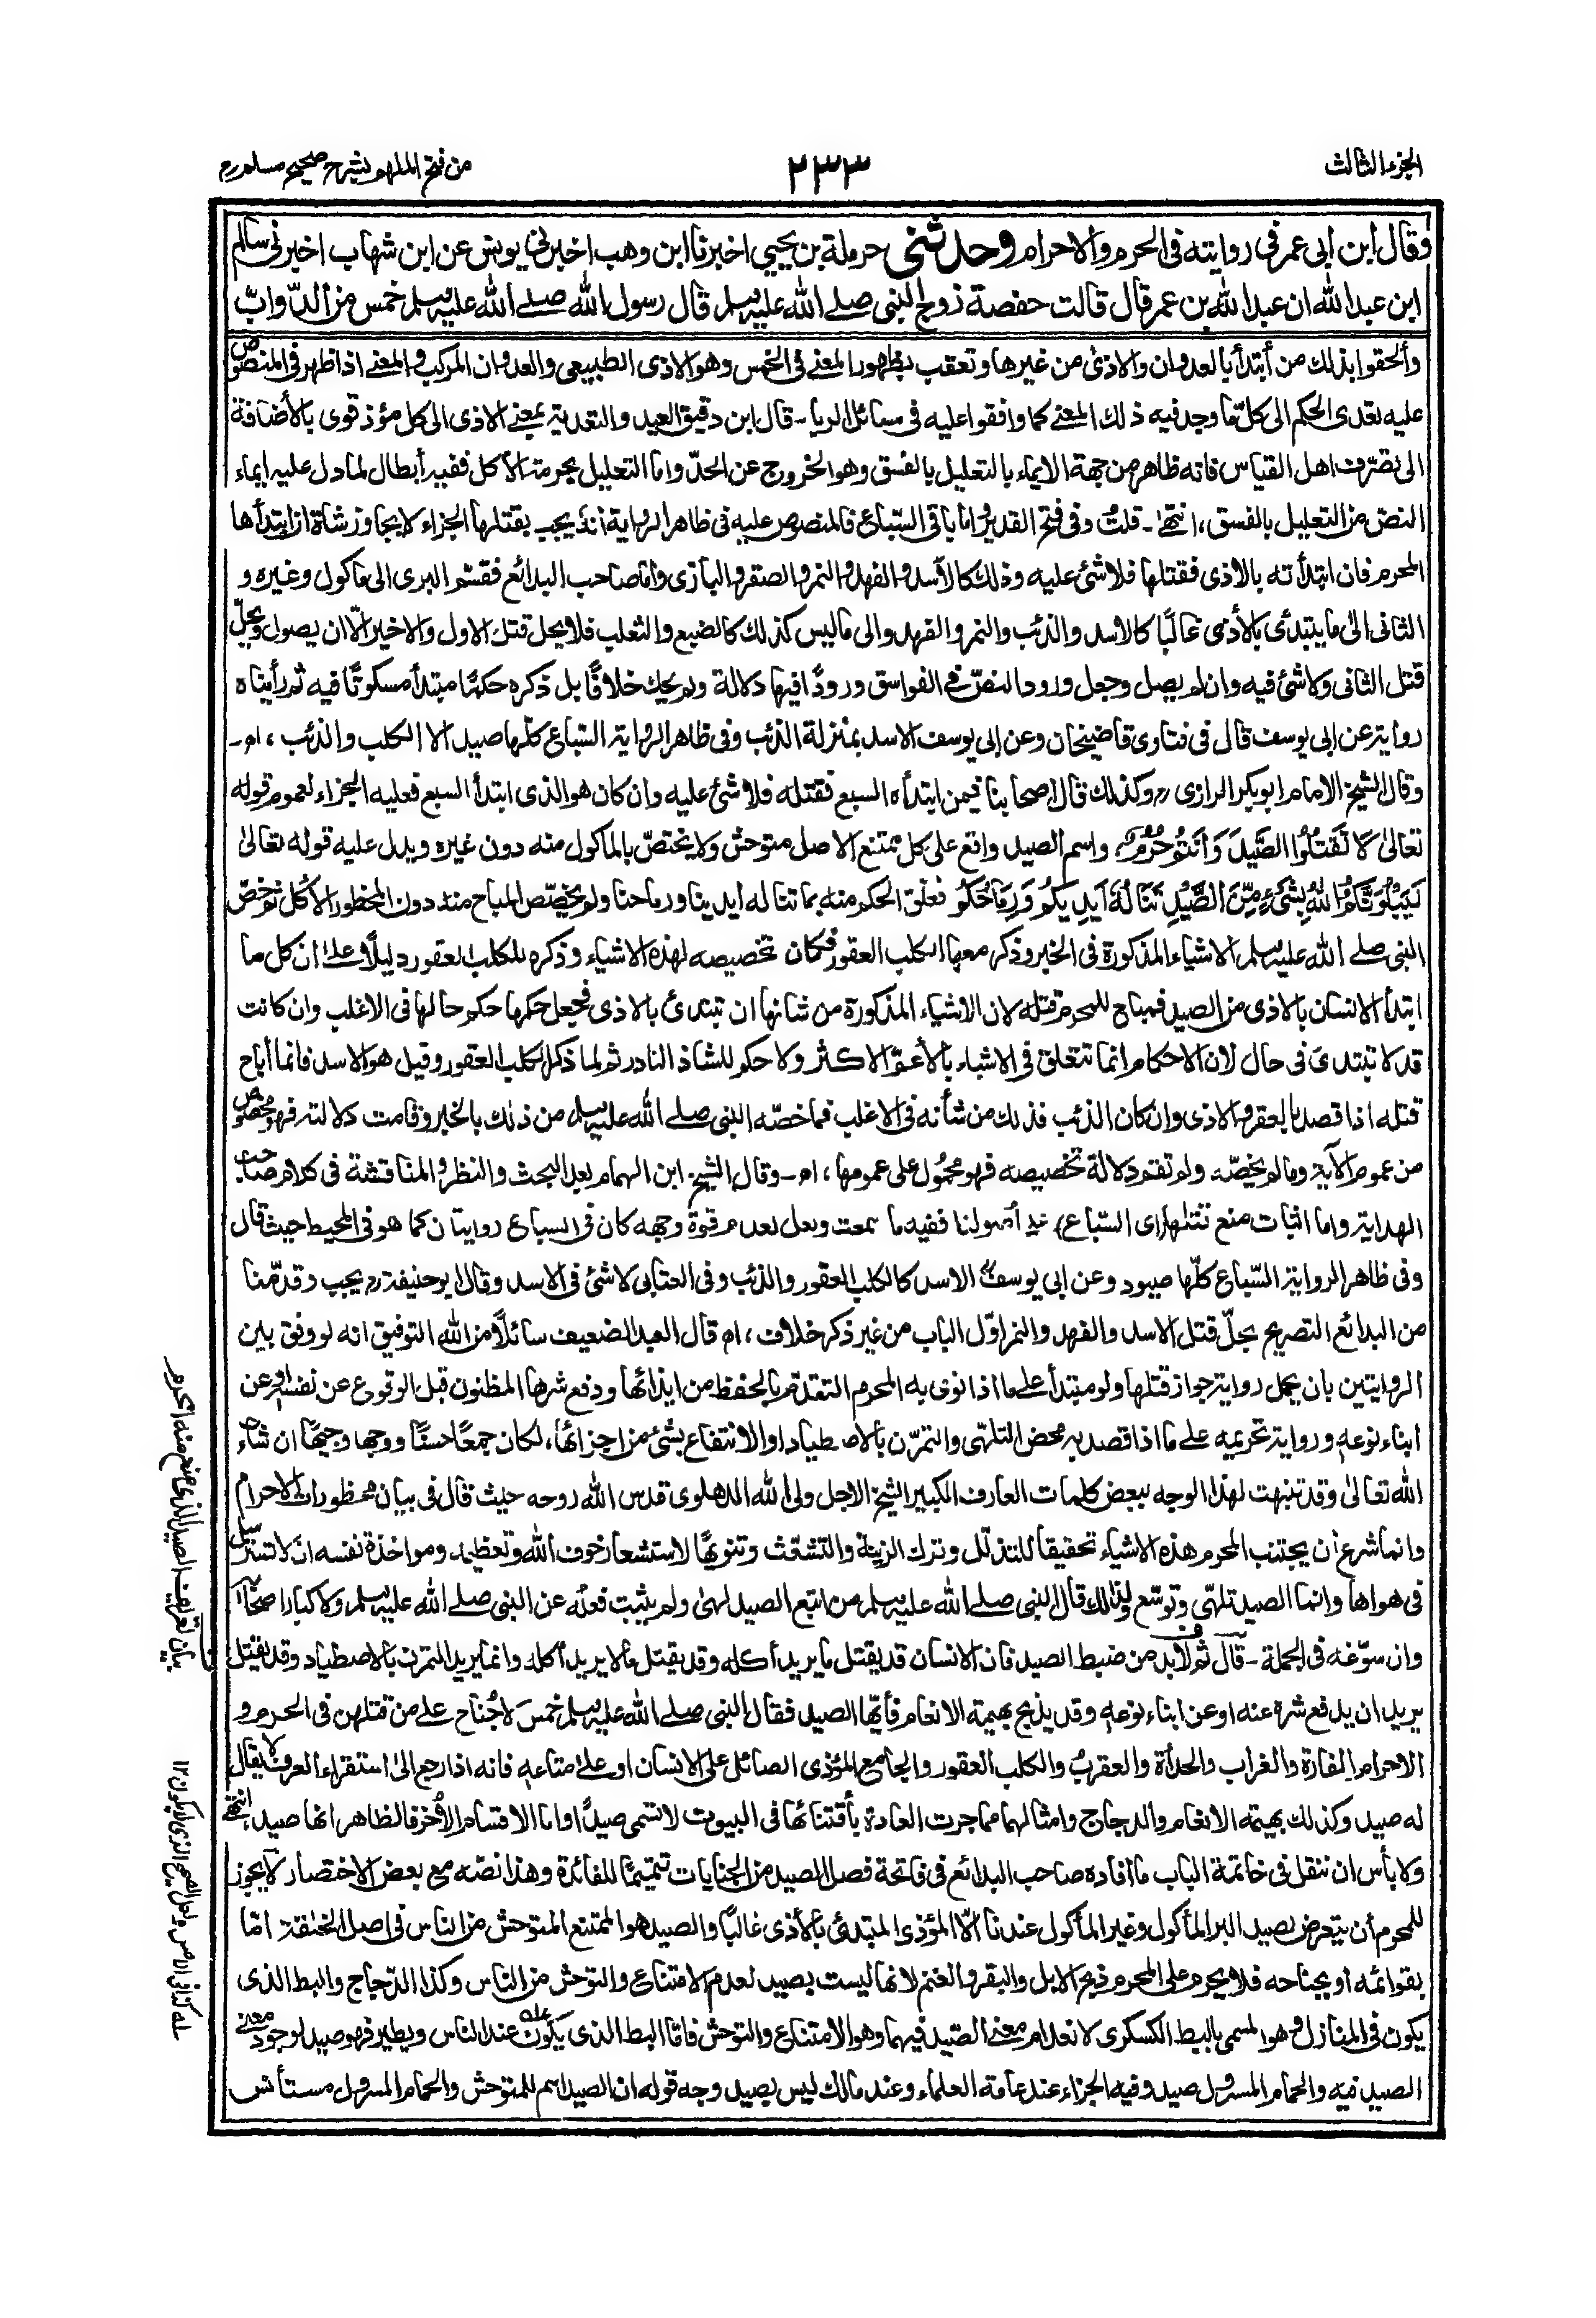 الجزء الثالث
٢٣٣
من فتح الملهم بشرح صحيح مسلم رح
وقال ابن ابى عمر فى روايته فى الحرم والاحرام وحدثنى حرملة بن يحيي اخبرنا ابن وهب اخبرنى يونس عن ابن شهاب اخبرنى سالم
ابن عبد الله ان عبد الله بن عمر قال قالت حفصة زوج النبى صلے الله عليه وسلم قال رسول الله صلے الله عليه وسلم خمس من الدّوابّ
وألحقوا بذلك من أبتدأ بالعدوان والاذىٰ من غيرها وتعقب بظهور المعنے فى الخمس وهو الاذى الطبيعى والعدوان المركب والمعنے اذا ظهر فى المنصوص
عليه تعدى الحكم الى كل ما وجد فيه ذلك المعنے كما وافقوا عليه فى مسائل الربا - قال ابن دقيق العيد والتعدية بمعنے الاذى الى كل مؤذ قوى بالأضافة
الى تصرّف اهل القياس فانه ظاهر من جهة الايماء بالتعليل بالفسق وهو الخروج عن الحدّ واما التعليل بحرمة الأكل ففيه أبطال لما دل عليه ايماء
النصّ من التعليل بالفسق، انتهےٰ - قلتُ وفى فتح القدير واما باقى السّباع فالمنصوص عليه فى ظاهر الرواية أنّه يجب بقتلها الجزاء لا يجاوز شاة ان ابتدأها
المحرم فان ابتدأته بالاذى فقتلها فلا شئ عليه وذلك كالأسد والفهد والنمر والصقر والبازى واما صاحب البدائع فقسّم البرى الى مأكول وغيره و
الثانى الىٰ ما يبتدئ بالأذى غالبًا كالاسد والذئب والنمر والفهد والى ما ليس كذلك كالضبع والثعلب فلا يحل قتل الاول والاخير الّا ان يصول ويحلّ
قتل الثانى ولا شئ فيه وان لم يصل وجعل ورود النصّ فے الفواسق ورودًا فيها دلالة ولم يحك خلافًا بل ذكره حكمًا مبتدأ مسكوتًا فيه ثم رأيناه
رواية عن ابى يوسف قال فى فتاوى قاضيخان وعن ابى يوسف الاسد بمنزلة الذئب وفى ظاهر الرواية السّباع كلّها صيد الا الكلب والذئب، اه -
وقال الشيخ الامام ابو بكر الرازى رح وكذلك قال اصحابنا فيمن ابتدأه السبع فقتله فلا شئ عليه وان كان هو الذى ابتدأ السبع فعليه الجزاء لعموم قوله
تعالىٰ لَا تَقْتُلُوا الصَّيْدَ وَأَنتُمْ حُرُمٌ، واسم الصيد واقع على كل ممتنع الاصل متوحش ولا يختصّ بالمأكول منه دون غيره ويدل عليه قوله تعالىٰ
لَيَبْلُوَنَّكُمُ اللهُ بِشَىْءٍ مِّنَ الصَّيْدِ تَنَالُهُ أَيْدِيكُمْ وَرِمَاحُكُمْ فعلّق الحكم منه بما تناله أيدينا ورماحنا ولم يخصّص المباح منه دون المحظور الأكل ثم خصّ
النبى صلے الله عليه وسلم الاشياء المذكورة فى الخبر وذكر معها الكلب العقور فكان تخصيصه لهذه الاشياء وذكره للكلب العقور دليلًا علےٰ ان كل ما
ابتدأ الانسان بالاذى من الصيد فمباح للمحرم قتله لان الاشياء المذكورة من شانها ان تبتدئ بالاذى فجعل حكمها حكم حالها فى الاغلب وان كانت
قد لا تبتدئ فى حال لان الاحكام انما تتعلق فى الاشياء بالأعمّ الاكثر ولا حكم للشاذ النادر ثم لما ذكر الكلب العقور وقيل هو الاسد فانما أباح
قتله اذا قصد بالعقر والاذى وان كان الذئب فذلك من شأنه فى الاغلب فما خصّه النبى صلے الله عليه وسلم من ذلك بالخبر وقامت دلالته فهو مخصوص
من عموم الآية وما لم يخصّه ولم تقم دلالة تخصيصه فهو محمُول على عمومها، اه - وقال الشيخ ابن الهمام بعد البحث والنظر والمناقشة فى كلام صاحب
الهداية واما اثبات منع قتلها (اى السّباع) على أصولنا ففيه ما سمعت ولعل لعدم قوة وجهه كان فى السباع روايتان كما هو فى المحيط حيث قال
وفى ظاهر الرواية السّباع كلّها صيود وعن ابى يوسفؒ الاسد كالكلب العقور والذئب وفى العتابى لا شئ فى الاسد وقال ابو حنيفة رح يجب وقدّمنا
من البدائع التصريح بحلّ قتل الاسد والفهد والنمر اوّل الباب من غير ذكر خلاف، اه قال العبد الضعيف سائلًا من الله التوفيق انه لو وفق بين
الروايتين بان يحمل رواية جواز قتلها ولو مبتدأ علے ما اذا نوى به المحرم التقدّم بالحفظ من ايذائها ودفع شرها المظنون قبل الوقوع عن نفسه او عن
ابناء نوعه ورواية تحريمه علے ما اذا قصد به محض التلهّى والتمرّن بالاصطياد او الانتفاع بشئ من اجزائها، لكان جمعًا حسنًا ووجها وجيهًا ان شاء
الله تعالىٰ وقد تنبهت لهذا الوجه ببعض كلمات العارف الكبير الشيخ الاجل ولى الله الدهلوى قدس الله روحه حيث قال فى بيان محظورات الاحرام
وانما شرع أن يجتنب المحرم هذه الاشياء تحقيقا للتذلّل وترك الزينة والتشعّث وتنويهًا لاستشعار خوف الله وتعظيمه ومواخذة نفسه ان لا تسترسل
فى هواها وانما الصيد تلهّى وتوسّع ولذلك قال النبى صلے الله عليه وسلم من اتبع الصيد لهىٰ ولم يثبت فعله عن النبى صلے الله عليه وسلم ولا كبار اصحابه
وان سوّغه فى الجملة - قال ثم لابد من ضبط الصيد فان الانسان قد يقتل ما يريد أكله وقد يقتل ما لا يريد أكله وانما يريد التمرّن بالاصطياد وقد يقتل
يريد ان يدفع شره عنه او عن ابناء نوعه وقد يذبح بهيمة الانعام فأيّها الصيد فقال النبى صلے الله عليه وسلم خمسَ لا جُناح علے من قتلهن فى الحرم و
الاحرام الفارة والغراب والحدأة والعقربُ والكلب العقور والجامع المؤذى الصائل على الانسان او علےٰ متاعه فانه اذا رجع الىٰ استقراء العرف لا يقال
له صيد وكذلك بهيمة الانعام والدجاج وامثالهما مما جرت العادة بأقتنائها فى البيوت لا تسمى صيدًا واما الاقسام الأُخر فالظاهر انها صيد، انتهے
ولا بأس ان ننقل فى خاتمة الباب ما أفاده صاحب البدائع فى فاتحة فصل الصيد من الجنايات تتميمًا للفائدة وهذا نصّه مع بعض الاختصار لا يجوز
للمحرم أن يتعرض لصيد البر المأكول وغير المأكول عندنا الّا المؤذى المبتدئ بالأذى غالبًا والصيد هو الممتنع المتوحش من الناس فى اصل الخلقة امّا
بقوائمه او بجناحه فلا يحرم على المحرم ذبح الابل والبقر والغنم لانها ليست بصيد لعدم الامتناع والتوحش من الناس وكذا الدّجاج والبط الذى
يكون فى المنازل وهو المسمى بالبط الكسكرى لانعدام معنے الصّيد فيهما وهو الامتناع والتوحش فامّا البط الذى يكون عند الناس ويطير فهو صيد لوجود معنے
الصيد فيه والحمام المسرول صيد وفيه الجزاء عند عامة العلماء وعند مالك ليس بصيد وجه قوله ان الصيد اسم للمتوحش والحمام المسرول مستأنس
بيان تعريف الصيد الذى منع منه المحرم
سله كذا فى الاصل ولعل الصحيح الذى لا يكون ١٢